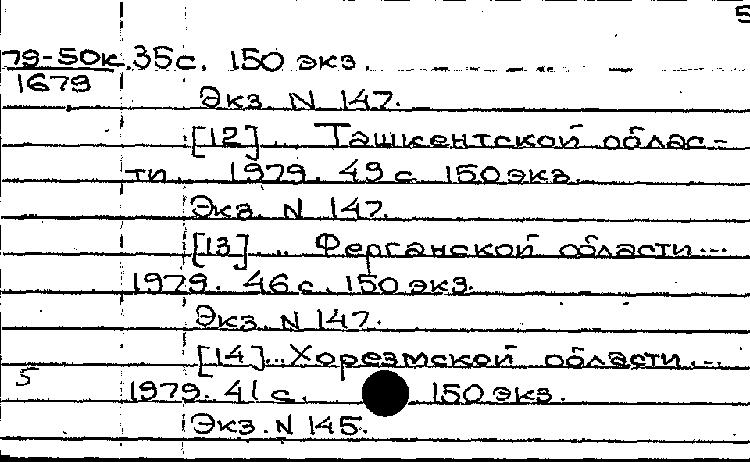 5
79-50к 35с. 150 экз.
1679
Экз. N 147.
[12] ... Ташкентской облас-
ти... 1979. 49 с. 150 экз.
Экз. N 147.
[13] ... Ферганской области...
1979. 46 с. 150 экз.
Экз. N 147.
[14]... Хорезмской области...
5
1979. 41 с. 150 экз.
Экз. N 145.